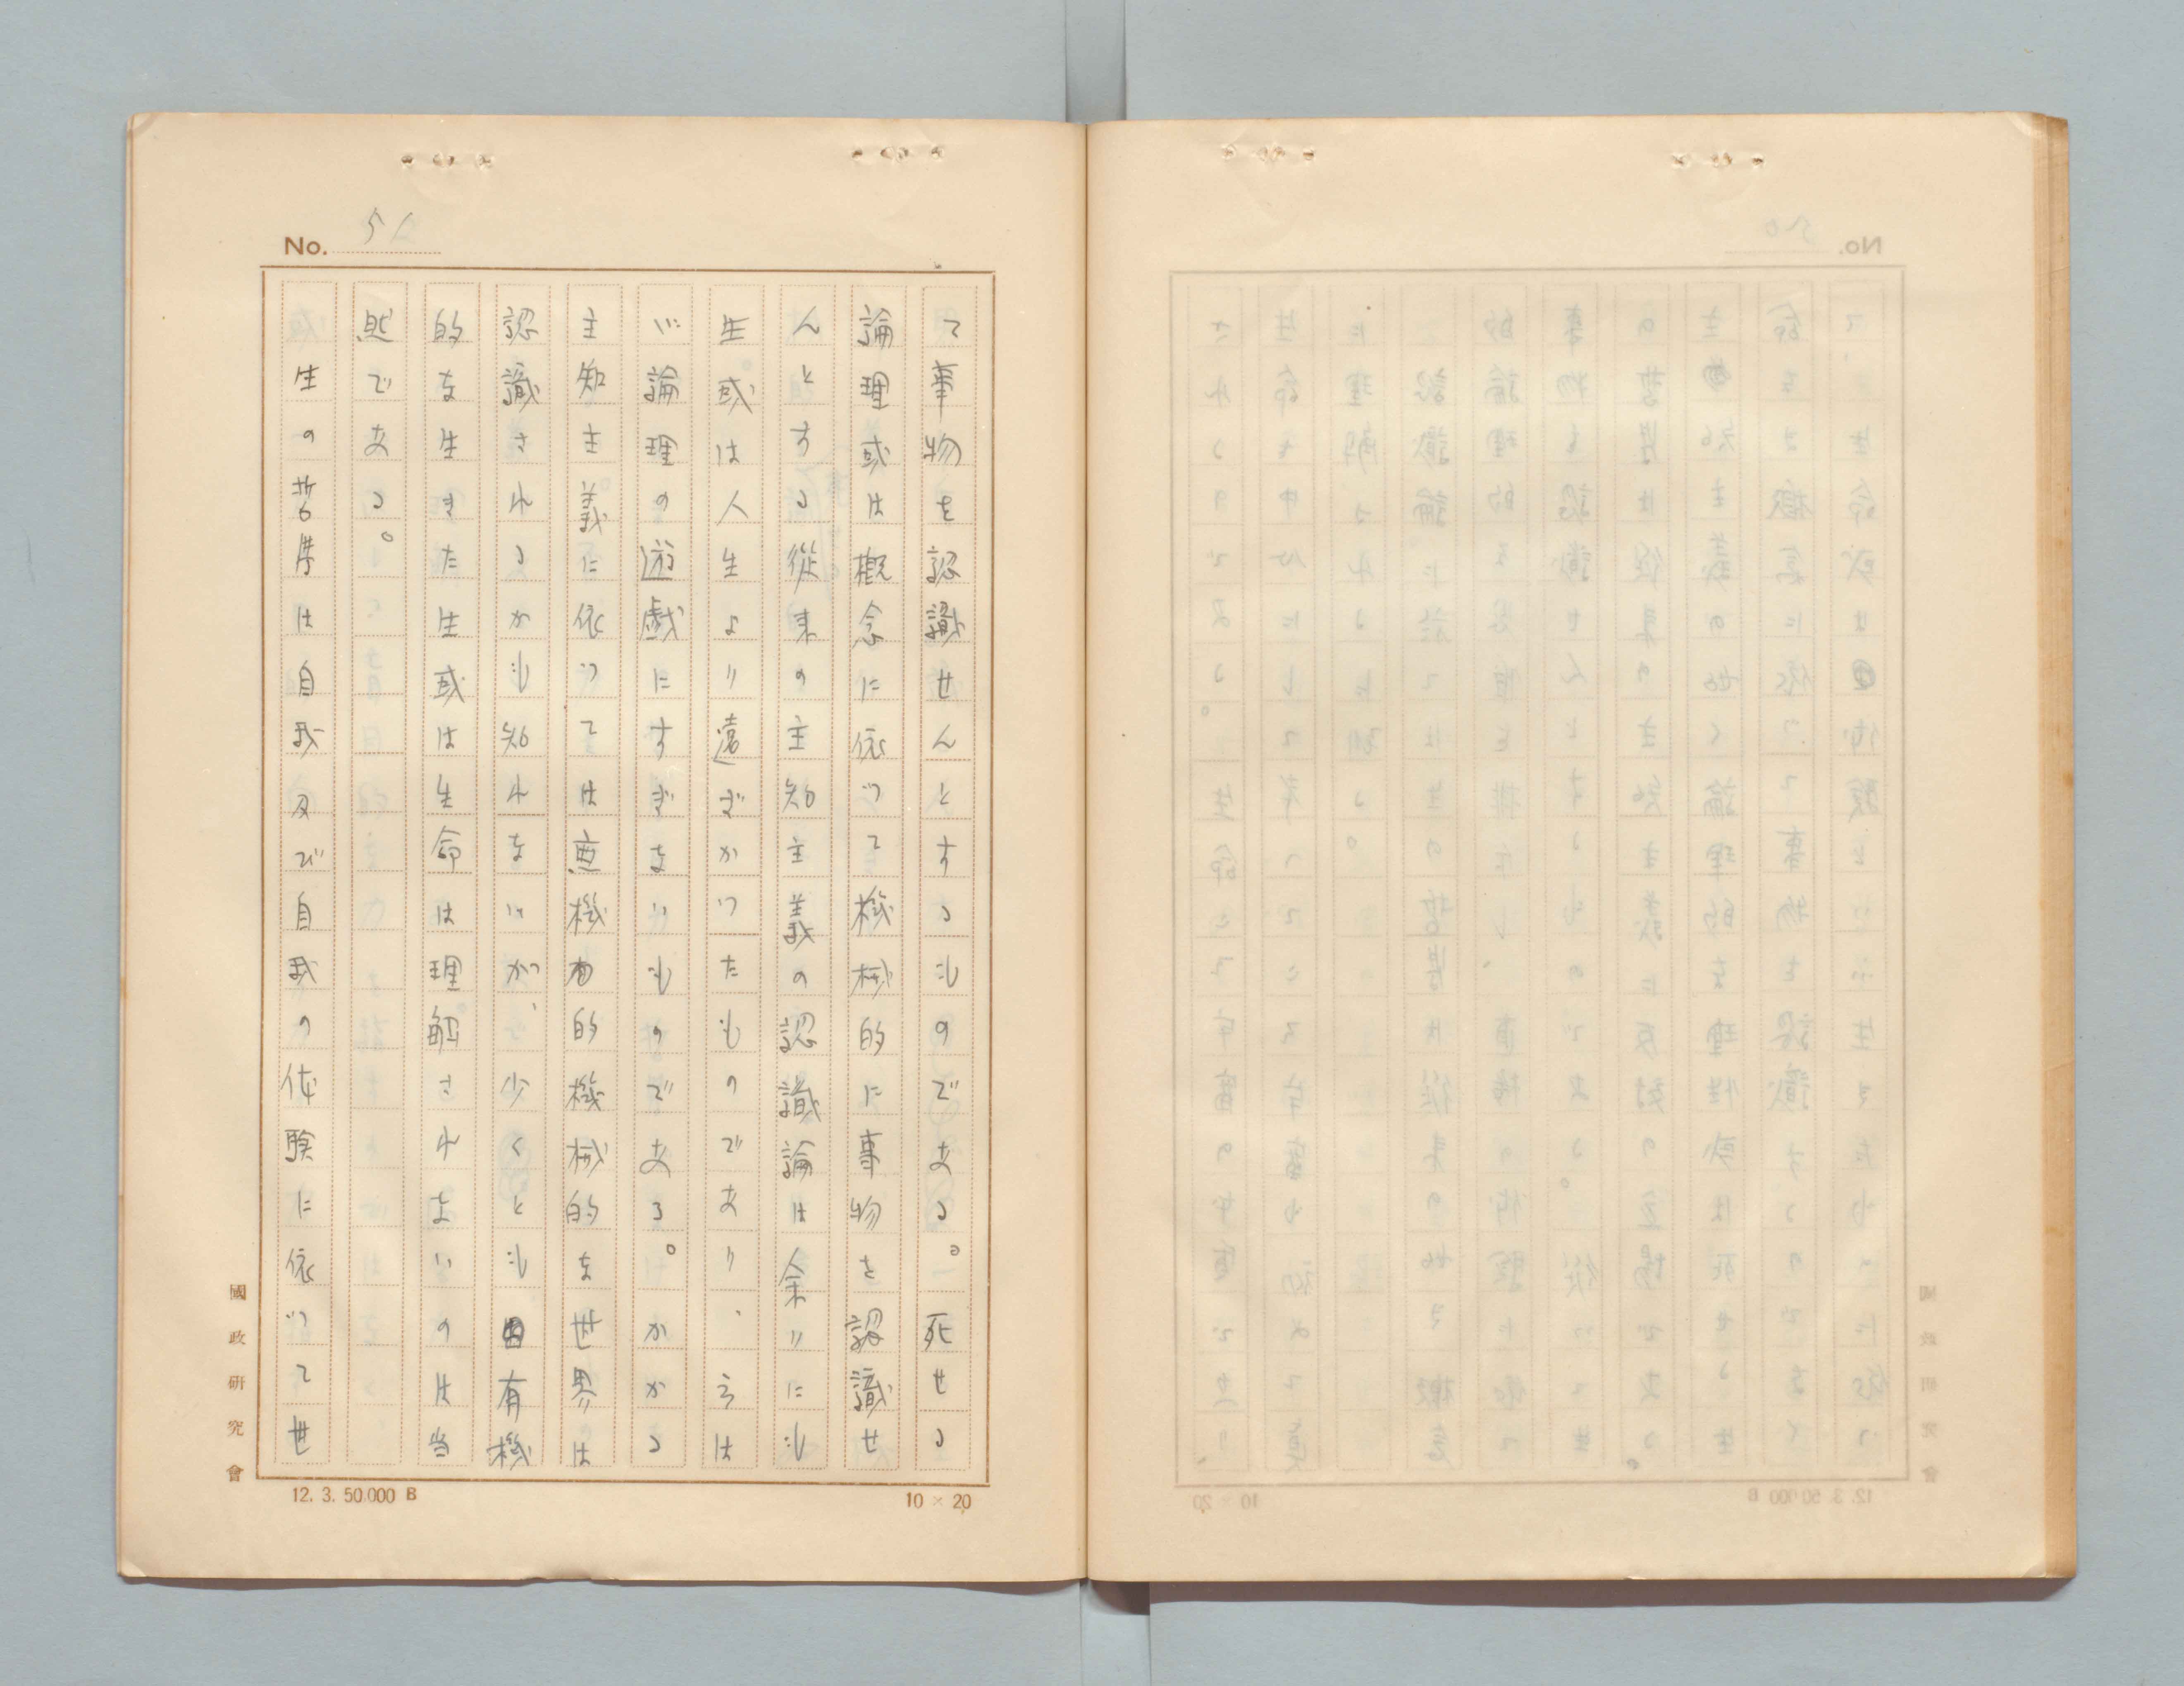 No. 51
て事物を認識せんとするものである。死せる
論理或は概念に依つて機械的に事物を認識せ
んとする從来の主知主義の認識論は余りにも
生或は人生より遠ざかつたものであり、言は
ゞ論理の遊戯にすぎないものである。かかる
主知主義に依つては無機的機械的な世界は
認識されるかも知れないが、少くとも有機
的な生きた生或は生命は理解されないのは当
然である。
生の哲学は自我及び自我の体験に依つて世
國政研究會
12. 3. 50,000 B
10 × 20